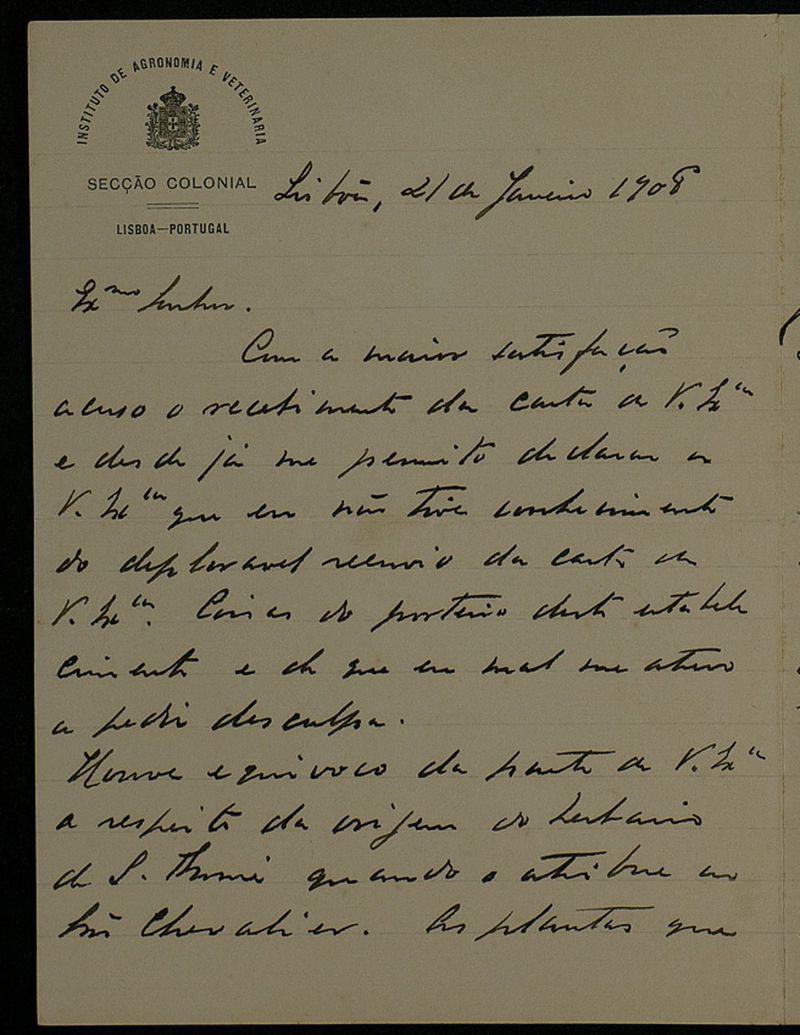 INSTITUTO DE AGRONOMIA E VETERINARIA
SECÇÃO COLONIAL
LISBOA—PORTUGAL
Lisbôa, 21 de Janeiro 1908
Exmo Senhor.
Com a maior satisfação
acuso o recebimento da carta de V. Excia
e desde já me permito declarar a
V. Excia que eu não tive conhecimento
do deploravel reenvio da carta de
V. Excia. Coisas do porteiro deste estabele
cimento e de que eu mal me atrevo
a pedir desculpa.
Houve equivoco da parte de V. Excia
a respeito da origem do herbario
de S. Thomé quando o atribue ao
Snr Chevalier. As plantas que